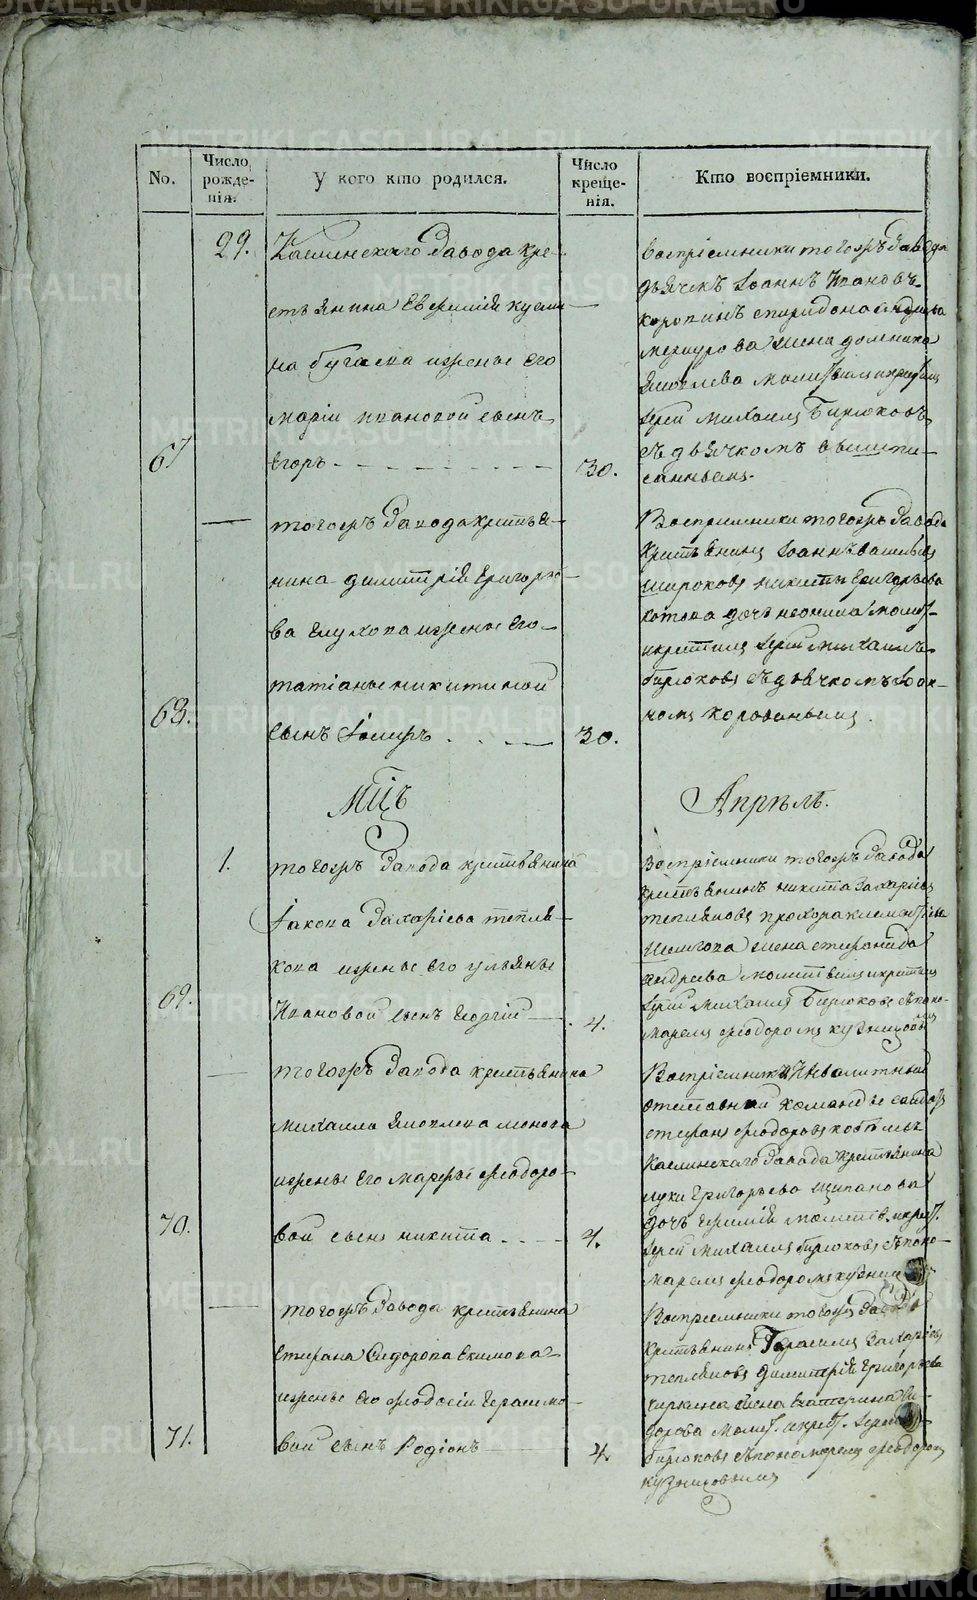 METRIKI.GASO-URAL.RU
No.
Число рожде-нія.
У кого кто родился.
Число креще-нія.
Кто воспріемники.
29.
Каслинскаго завода кре-
стьянина Евфимія кузми
на бугаева ижены его
маріи ивановой сынъ
67
Егоръ
30.
воспріемники тогожъ завода
дьячекъ Іоаннъ Ивановъ
коровинъ спиридона
меркурова жена домника
Яковлева молитвилъ икрестилъ
Іерей михаилъ Бирюковъ
съ дьячкомъ вышепи-
саннымъ.
тогожъ завода крестья-
нина димитрія григорье-
ва глухова ижены его
татіаны никитиной
68.
сынъ
30.
Воспріемники тогожъ завода
крестьянинъ Іоаннъ васильевъ
широковъ никиты григорьева
котова дочь неонила молит.
икрестилъ Іерей михаилъ
бирюковъ съ дьячкомъ Іоан-
номъ коровинымъ.
Мцъ
Апрѣль.
1.
тогожъ завода крестьянина
Іакова Захаріева тепля-
кова ижены его ульяны
69.
Ивановой сынъ Георгій
4.
Воспріемники тогожъ завода
крестьянинъ никита Захаріевъ
тепляковъ прохора
жена степанида
андреева молитвилъ икрестилъ
Іерей михаилъ Бирюковъ съ поно-
маремъ феодоромъ кузнецовымъ
тогожъ завода крестьянина
михаила Яковлева
ижены его марфы феодоро-
70.
вой сынъ никита
4.
Воспріемники
отставной команды солдатъ
степанъ феодоровъ
Каслинскаго завода крестьянина
луки григорьева щипанова
дочь молитв. икрест.
Іерей михаилъ бирюковъ съ поно-
маремъ феодоромъ
тогожъ завода крестьянина
стефана Сидорова Екимова
ижены его феодосіи герасимо-
71.
вой сынъ Родіонъ
4.
Воспріемники тогожъ завода
крестьянинъ Герасимъ Захаріевъ
тепляковъ димитрія григорьева
чиркина жена екатерина
молит. икрест. Іерей
бирюковъ съ пономаремъ феодоромъ
кузнецовымъ